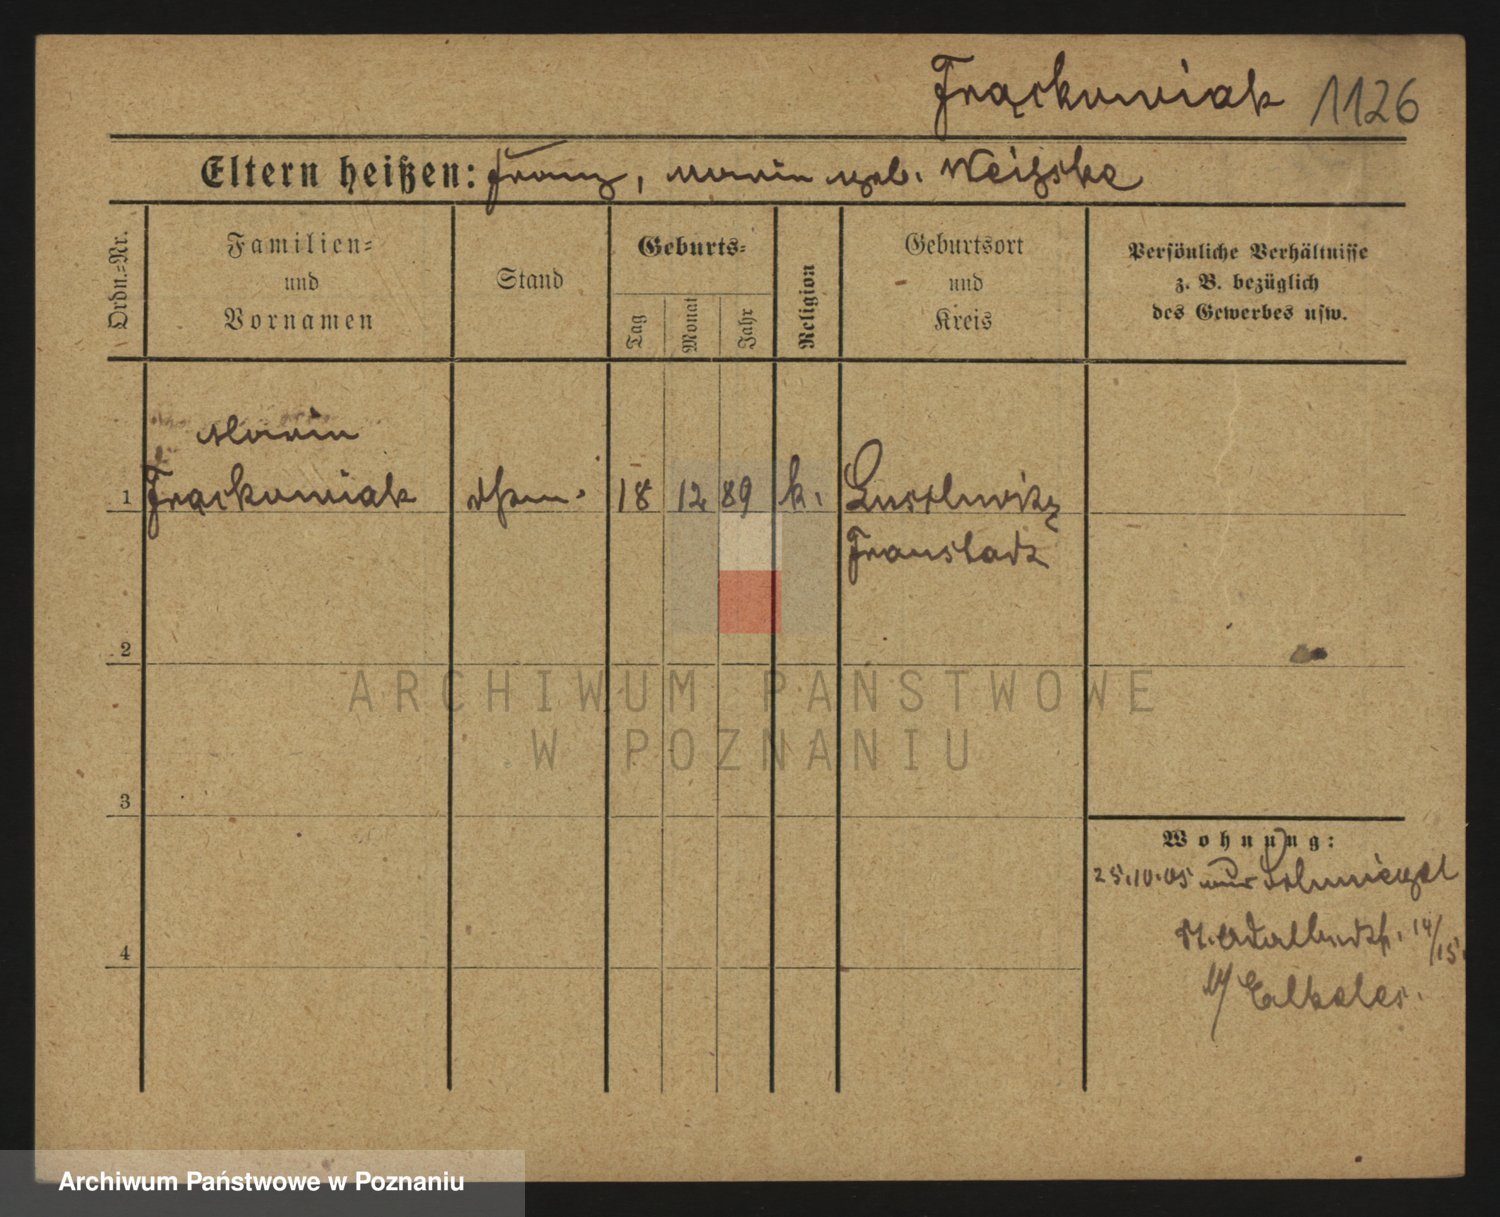 Frąckowiak 1126
Eltern heißen: Franz, Marie geb. Weishke
Ordn.=Nr.
Familien=
und
Vornamen
Stand
Geburts=
Tag
Monat
Jahr
Religion
Geburtsort
und
Kreis
Persönliche Verhältnisse
z. B. bezüglich
des Gewerbes usw.
Marie
1 Frąckowiak 18 12 89 k.
Fraustadt
2
ARCHIWUM PAŃSTWOWE
W POZNANIU
3
Wohnung:
25.10.05 aus Schmiegel
St. Adalbertstr. 14/15.
4
Archiwum Państwowe w Poznaniu